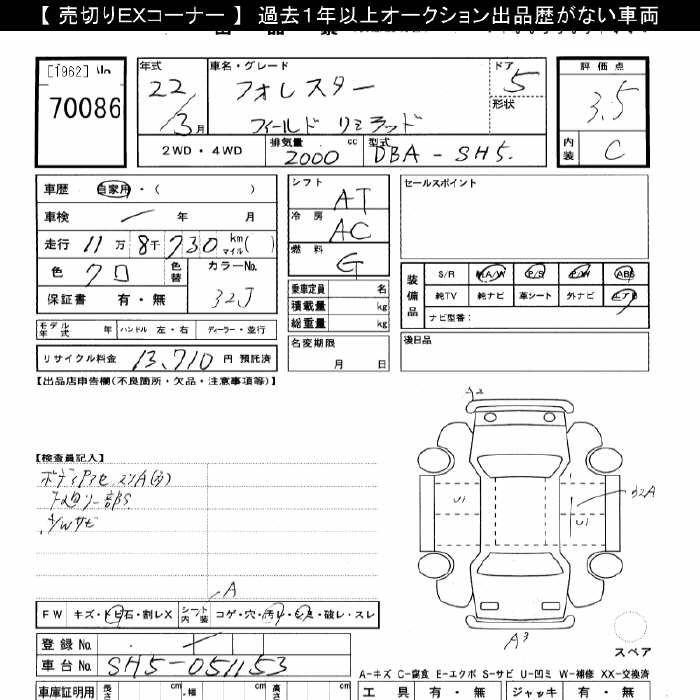 【 売切りEXコーナー 】 過去1年以上オークション出品歴がない車両
[1962] No
70086
年式
22/3月
車名・グレード
フォレスター
フィールド リミテッド
ドア
5
形状
評価点
3.5
内装
C
2WD・4WD
排気量
2000 cc
型式
DBA-SH5.
車歴 自家用・( )
車検 ー 年 月
走行 11万8千730 km マイル( )
色 クロ 色替
カラーNo.
32J
保証書 有・無
モデル年式 年 ハンドル 左・右 ディーラー・並行
リサイクル料金 13,710 円 預託済
シフト
AT
冷房
AC
燃料
G
乗車定員 名
積載量 kg
総重量 kg
名変期限
月 日
セールスポイント
装備品
S/R A/W P/S P/W ABS
純TV 純ナビ 革シート 外ナビ エアB
ナビ型番:
後日品
【出品店申告欄(不良箇所・欠品・注意事項等)】
【検査員記入】
A/Wサビ
U1
U1
A3
スペア
A
FW キズ・トビ石・割レX
シート内装 コゲ・穴・汚レ・シミ・破レ・スレ
登録No. ー
車台No. SH5-051153
A-キズ C-腐食 E-エクボ S-サビ U-凹ミ W-補修 XX-交換済
車庫証明用 長さ cm 幅 cm 高さ cm
工具 有・無 ジャッキ 有・無